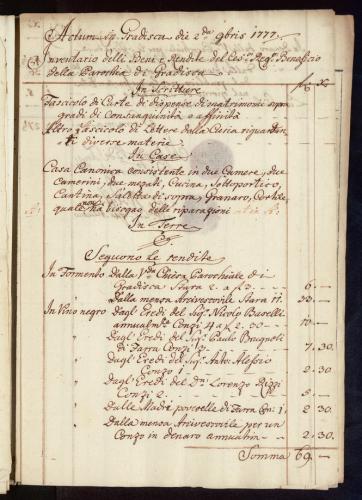 Actum in Gradisca die 2da 9bris 1777
Inventario delli Beni e Rendite del Ces: Reg: Beneficio
della Parochia di Gradisca
f. x.
In Scritture
Fascicolo di Carte di dispense di matrimonii sopra
gradi di Consanguinità o affinità
Altro fascicolo di Lettere dalla Curia riguardan-
ti diverse materie
In Case
Casa Canonica consistente in due Camere, due
Camerini, due mezati, Cucina, Sottoportico,
Cantina, Saletta di sopra, Granaro, Cortile,
quale non ha bisogno delle riparazioni
In Terre
Seguono le rendite
In Formento dalla Chiesa Parochiale di
Gradisca Stara 2 a f 3 6 —
Dalla mensa Arcivescovile Stara 11. 33 —
In Vino negro dagli Eredi del Sig: Nicolo Buselli
annualm: Conzi 4 a f 2. 30 10 —
Dagli Eredi del Sig: Paulo Brugnoli
di Farra Conzi 3. 7. 30
dagli Eredi del Sig: Anto: Alessio
Conzo 1 2. 30
dagli Eredi del Dn: Lorenzo Rizzi
Conzi 2. 5 —
Dalle Madri di Farra Con: 1. 2. 30
Dalla mensa Arcivescovile per un
Conzo in denaro annualm 2. 30
Somma 69 —